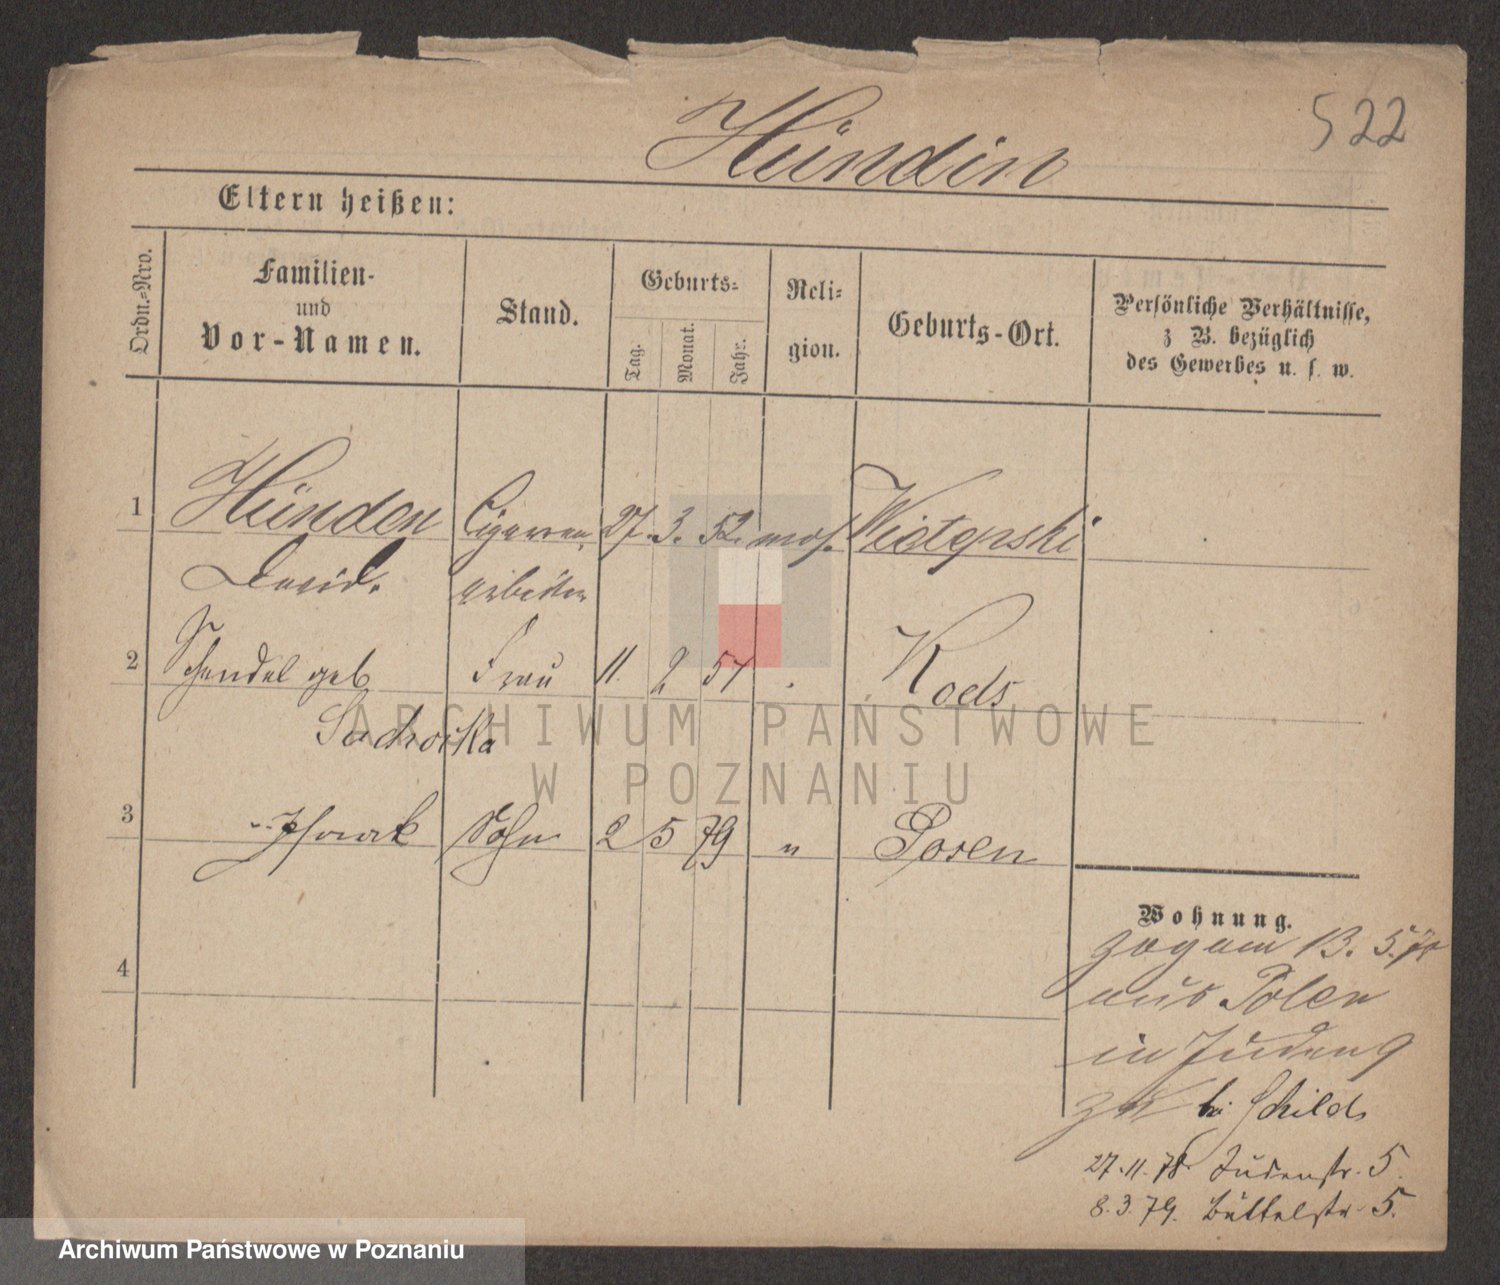 522
Hündin
Eltern heißen:
Ordn.-Nro.
Familien-
und
Vor-Namen.
Stand.
Geburts-
Tag.
Monat.
Jahr.
Reli-
gion.
Geburts-Ort.
Persönliche Verhältnisse,
z B. bezüglich
des Gewerbes u. s. w.
1 Hünden Cigarren 27. 3. 52. mos.
David. arbeiter
2 Schendel geb Frau 11. 2 57
3 Isaak Sohn 2 5 79 " Posen
4
Wohnung.
zog am 13. 5.78
aus Polen
in Juden 9
zu bei Schilds
27.11.78 Judenstr. 5.
8.3.79. Büttelstr 5.
ARCHIWUM PAŃSTWOWE
W POZNANIU
Archiwum Państwowe w Poznaniu